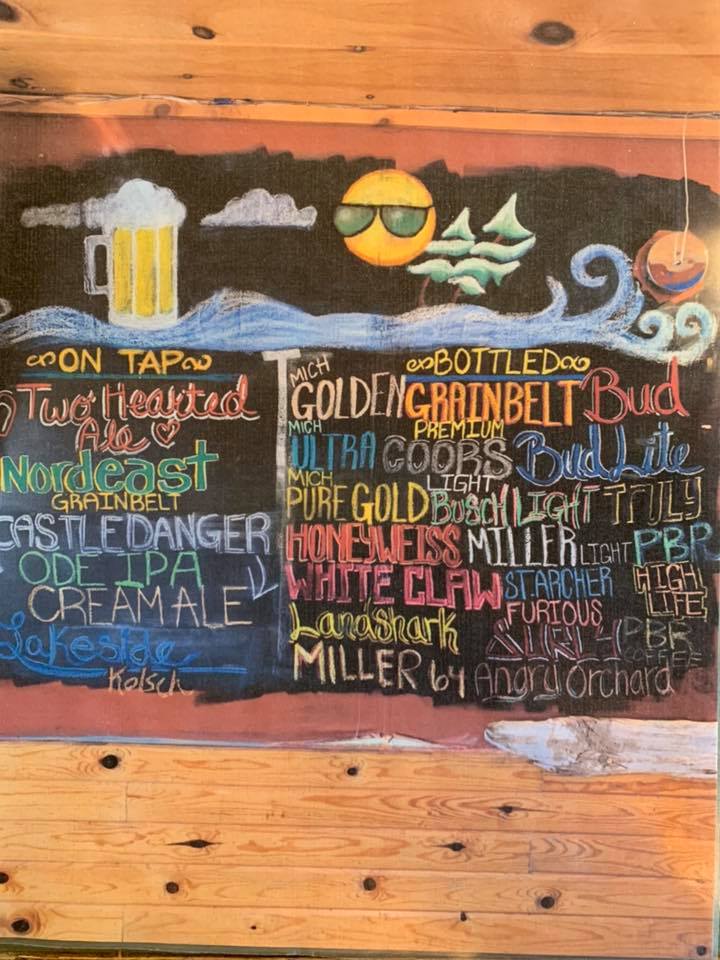 ON TAP
Two Hearted
Ale
Nordeast
GRAINBELT
CASTLE DANGER
ODE IPA
CREAM ALE
Lakeside
Kolsch
BOTTLED
MICH
GOLDEN GRAINBELT Bud
MICH PREMIUM
ULTRA COORS Bud Lite
MICH LIGHT
PURE GOLD Busch LIGHT TRULY
HONEYWEISS MILLER LIGHT PBR
WHITE CLAW STARCHER HIGH
LIFE
FURIOUS
Landshark SURLY PBR
COFFEE
MILLER 64 Angry Orchard